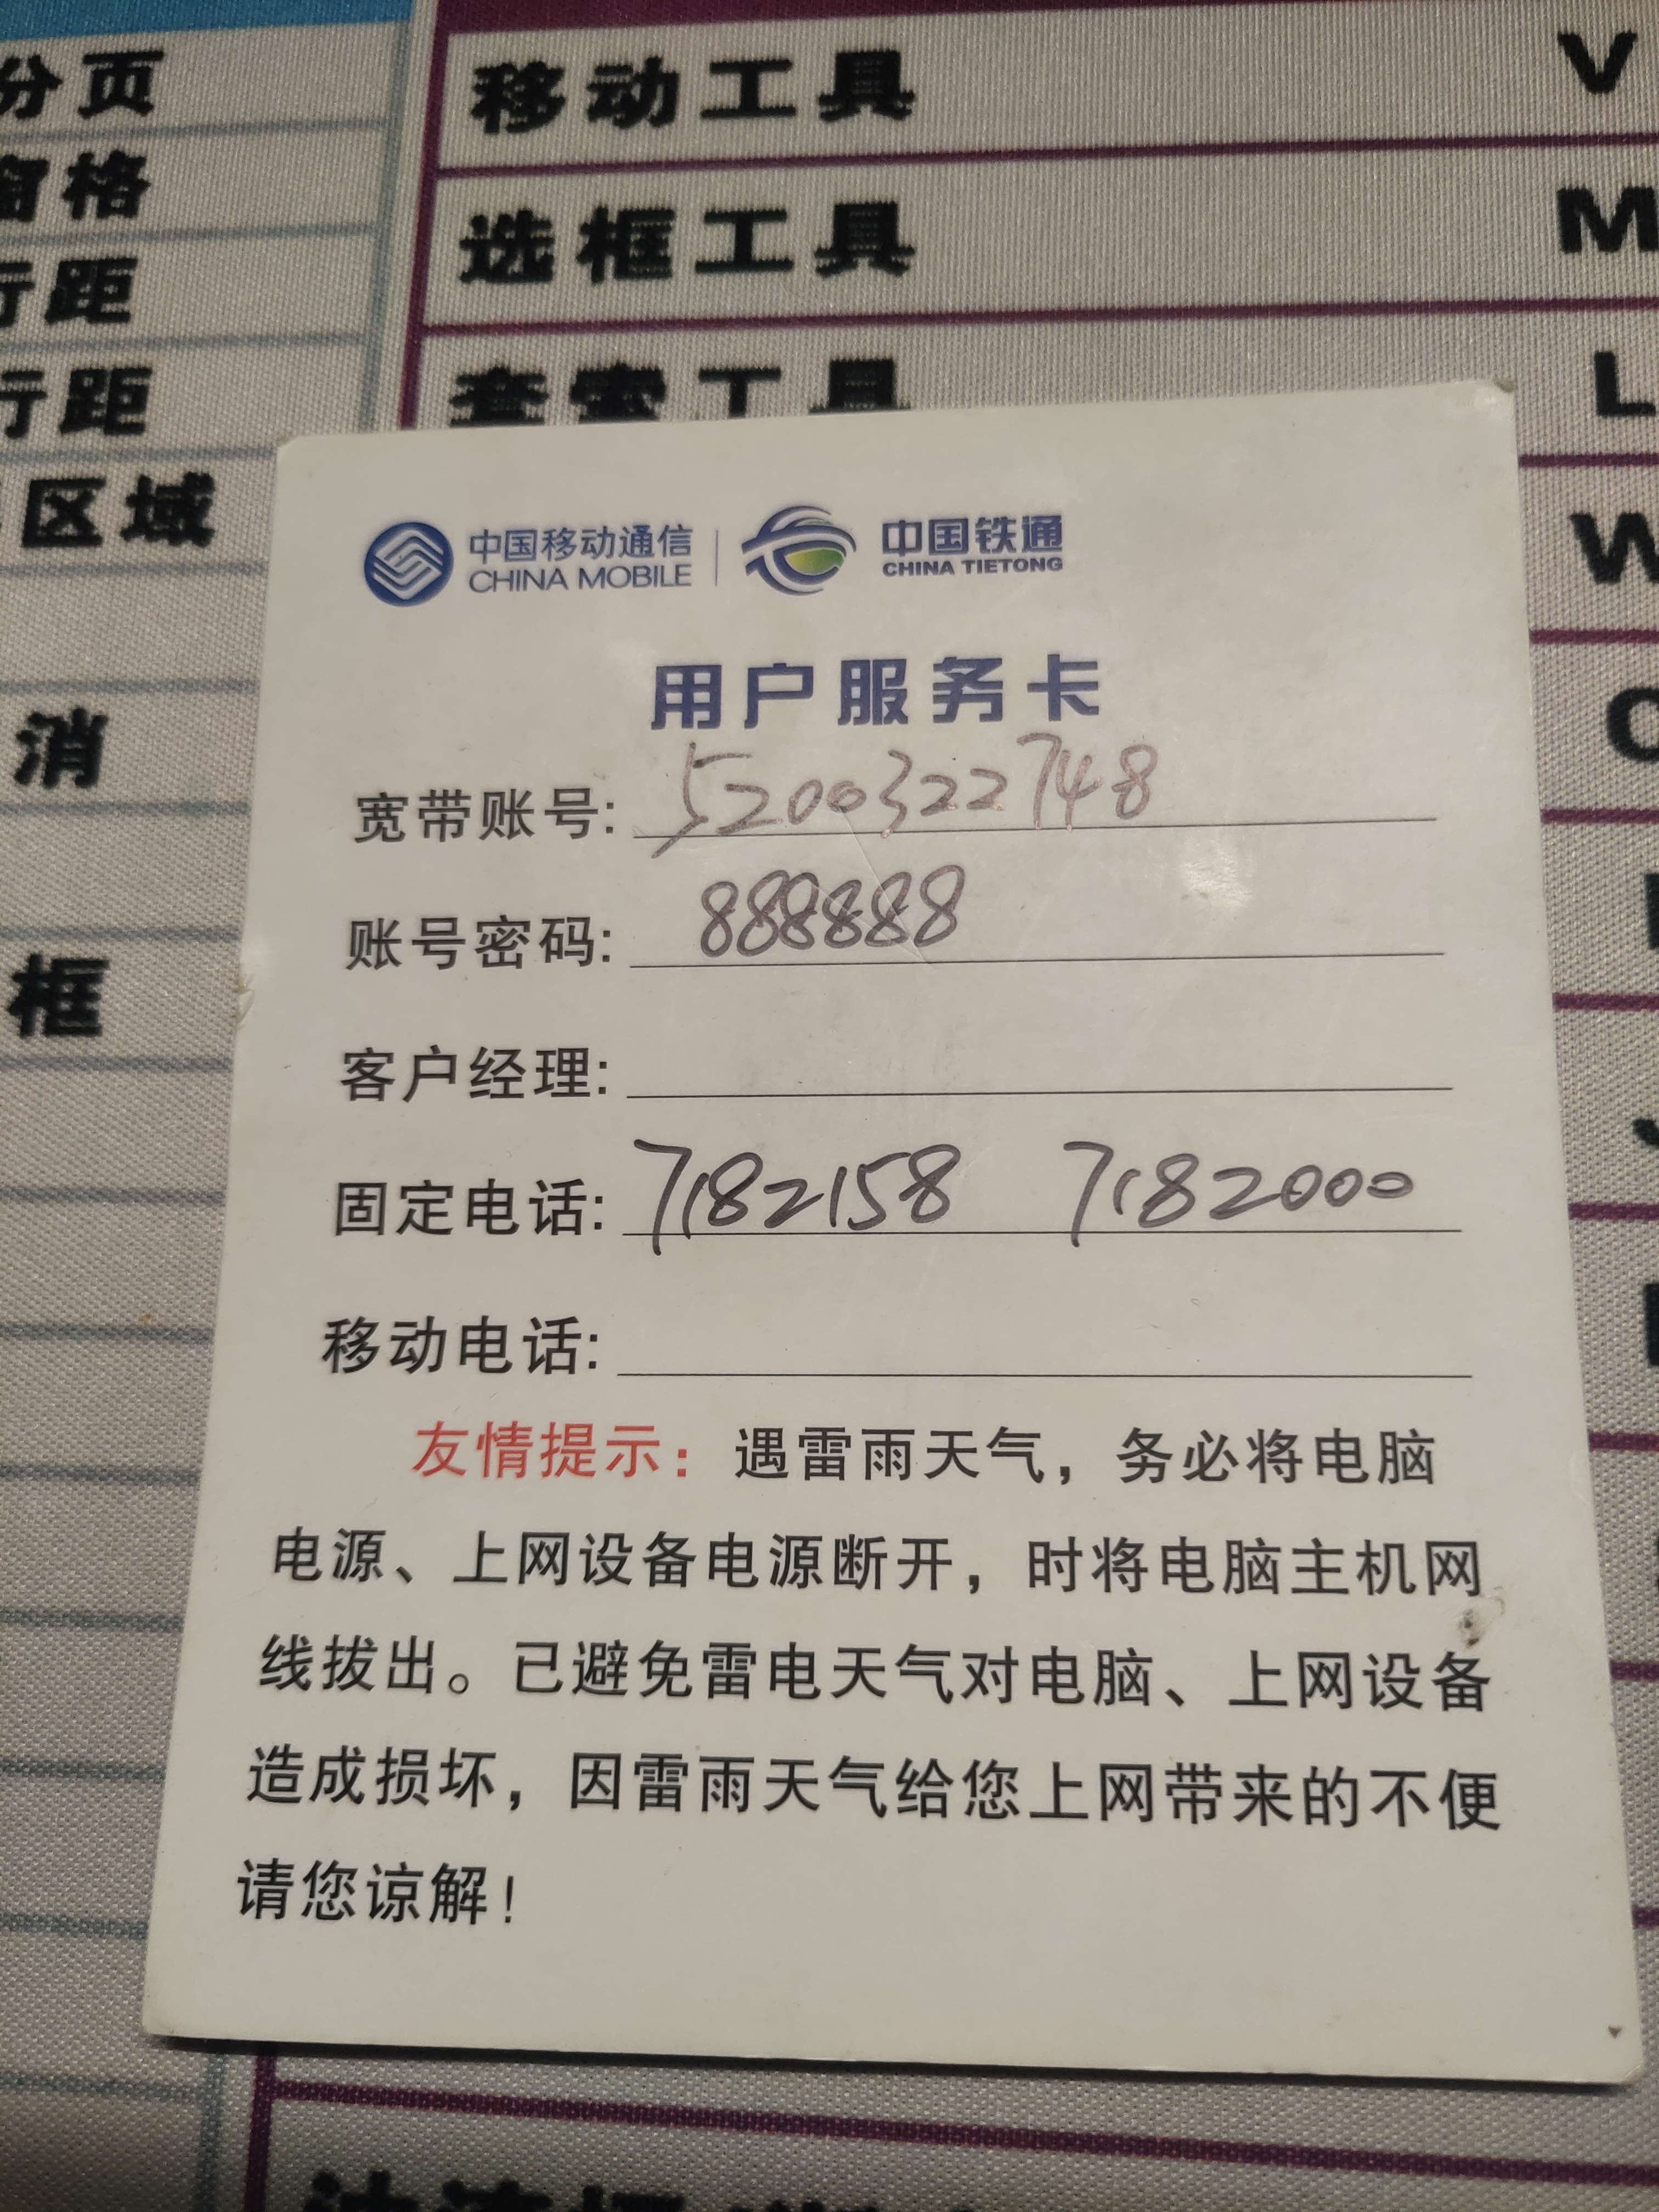 分页
移动工具 V
窗格
选框工具 M
行距
行距
套索工具 L
区域
W
消
框
中国移动通信
CHINA MOBILE
中国铁通
CHINA TIETONG
用户服务卡
宽带账号: 5200322748
账号密码: 888888
客户经理:
固定电话: 7182158 7182000
移动电话:
友情提示：遇雷雨天气，务必将电脑
电源、上网设备电源断开，时将电脑主机网
线拔出。已避免雷电天气对电脑、上网设备
造成损坏，因雷雨天气给您上网带来的不便
请您谅解！